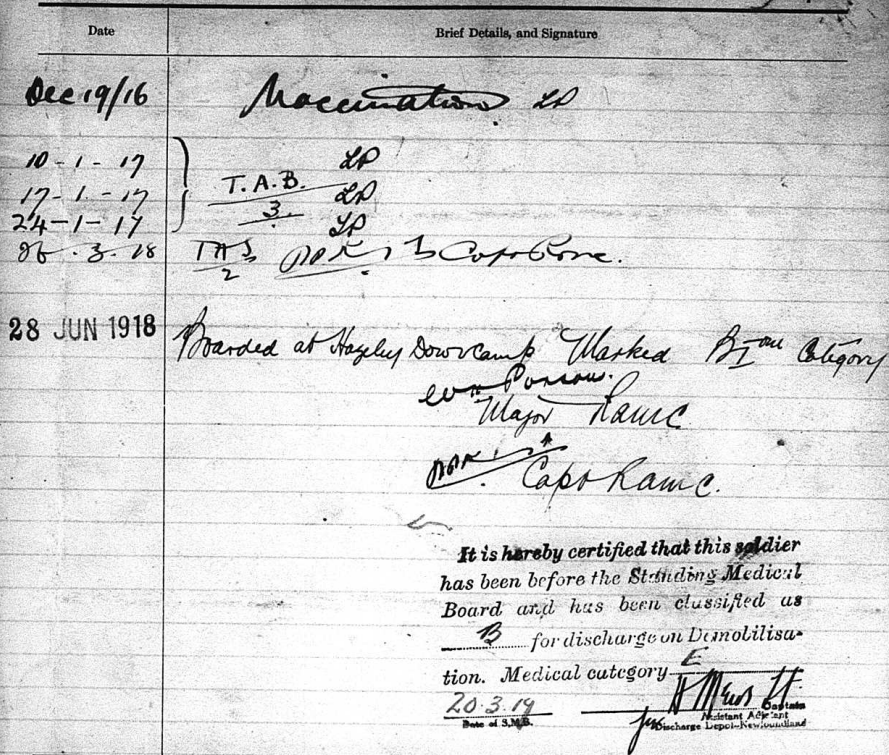 Date Brief Details, and Signature
Dec 19/16 Vaccination LP
10-1-17 LP
17-1-17 T.A.B. LP
24-1-17 3. LP
26.3.18 TAB
2
28 JUN 1918 Boarded at Hazeley Down Camp Marked B I Category
Parsons.
Major RAMC
Capt RAMC.
It is hereby certified that this soldier
has been before the Standing Medical
Board and has been classified as
B for discharge on Demobilisa-
tion. Medical category E
20.3.19 Captain
Date of S.M.B. for Assistant Adjutant
Discharge Depot—Newfoundland